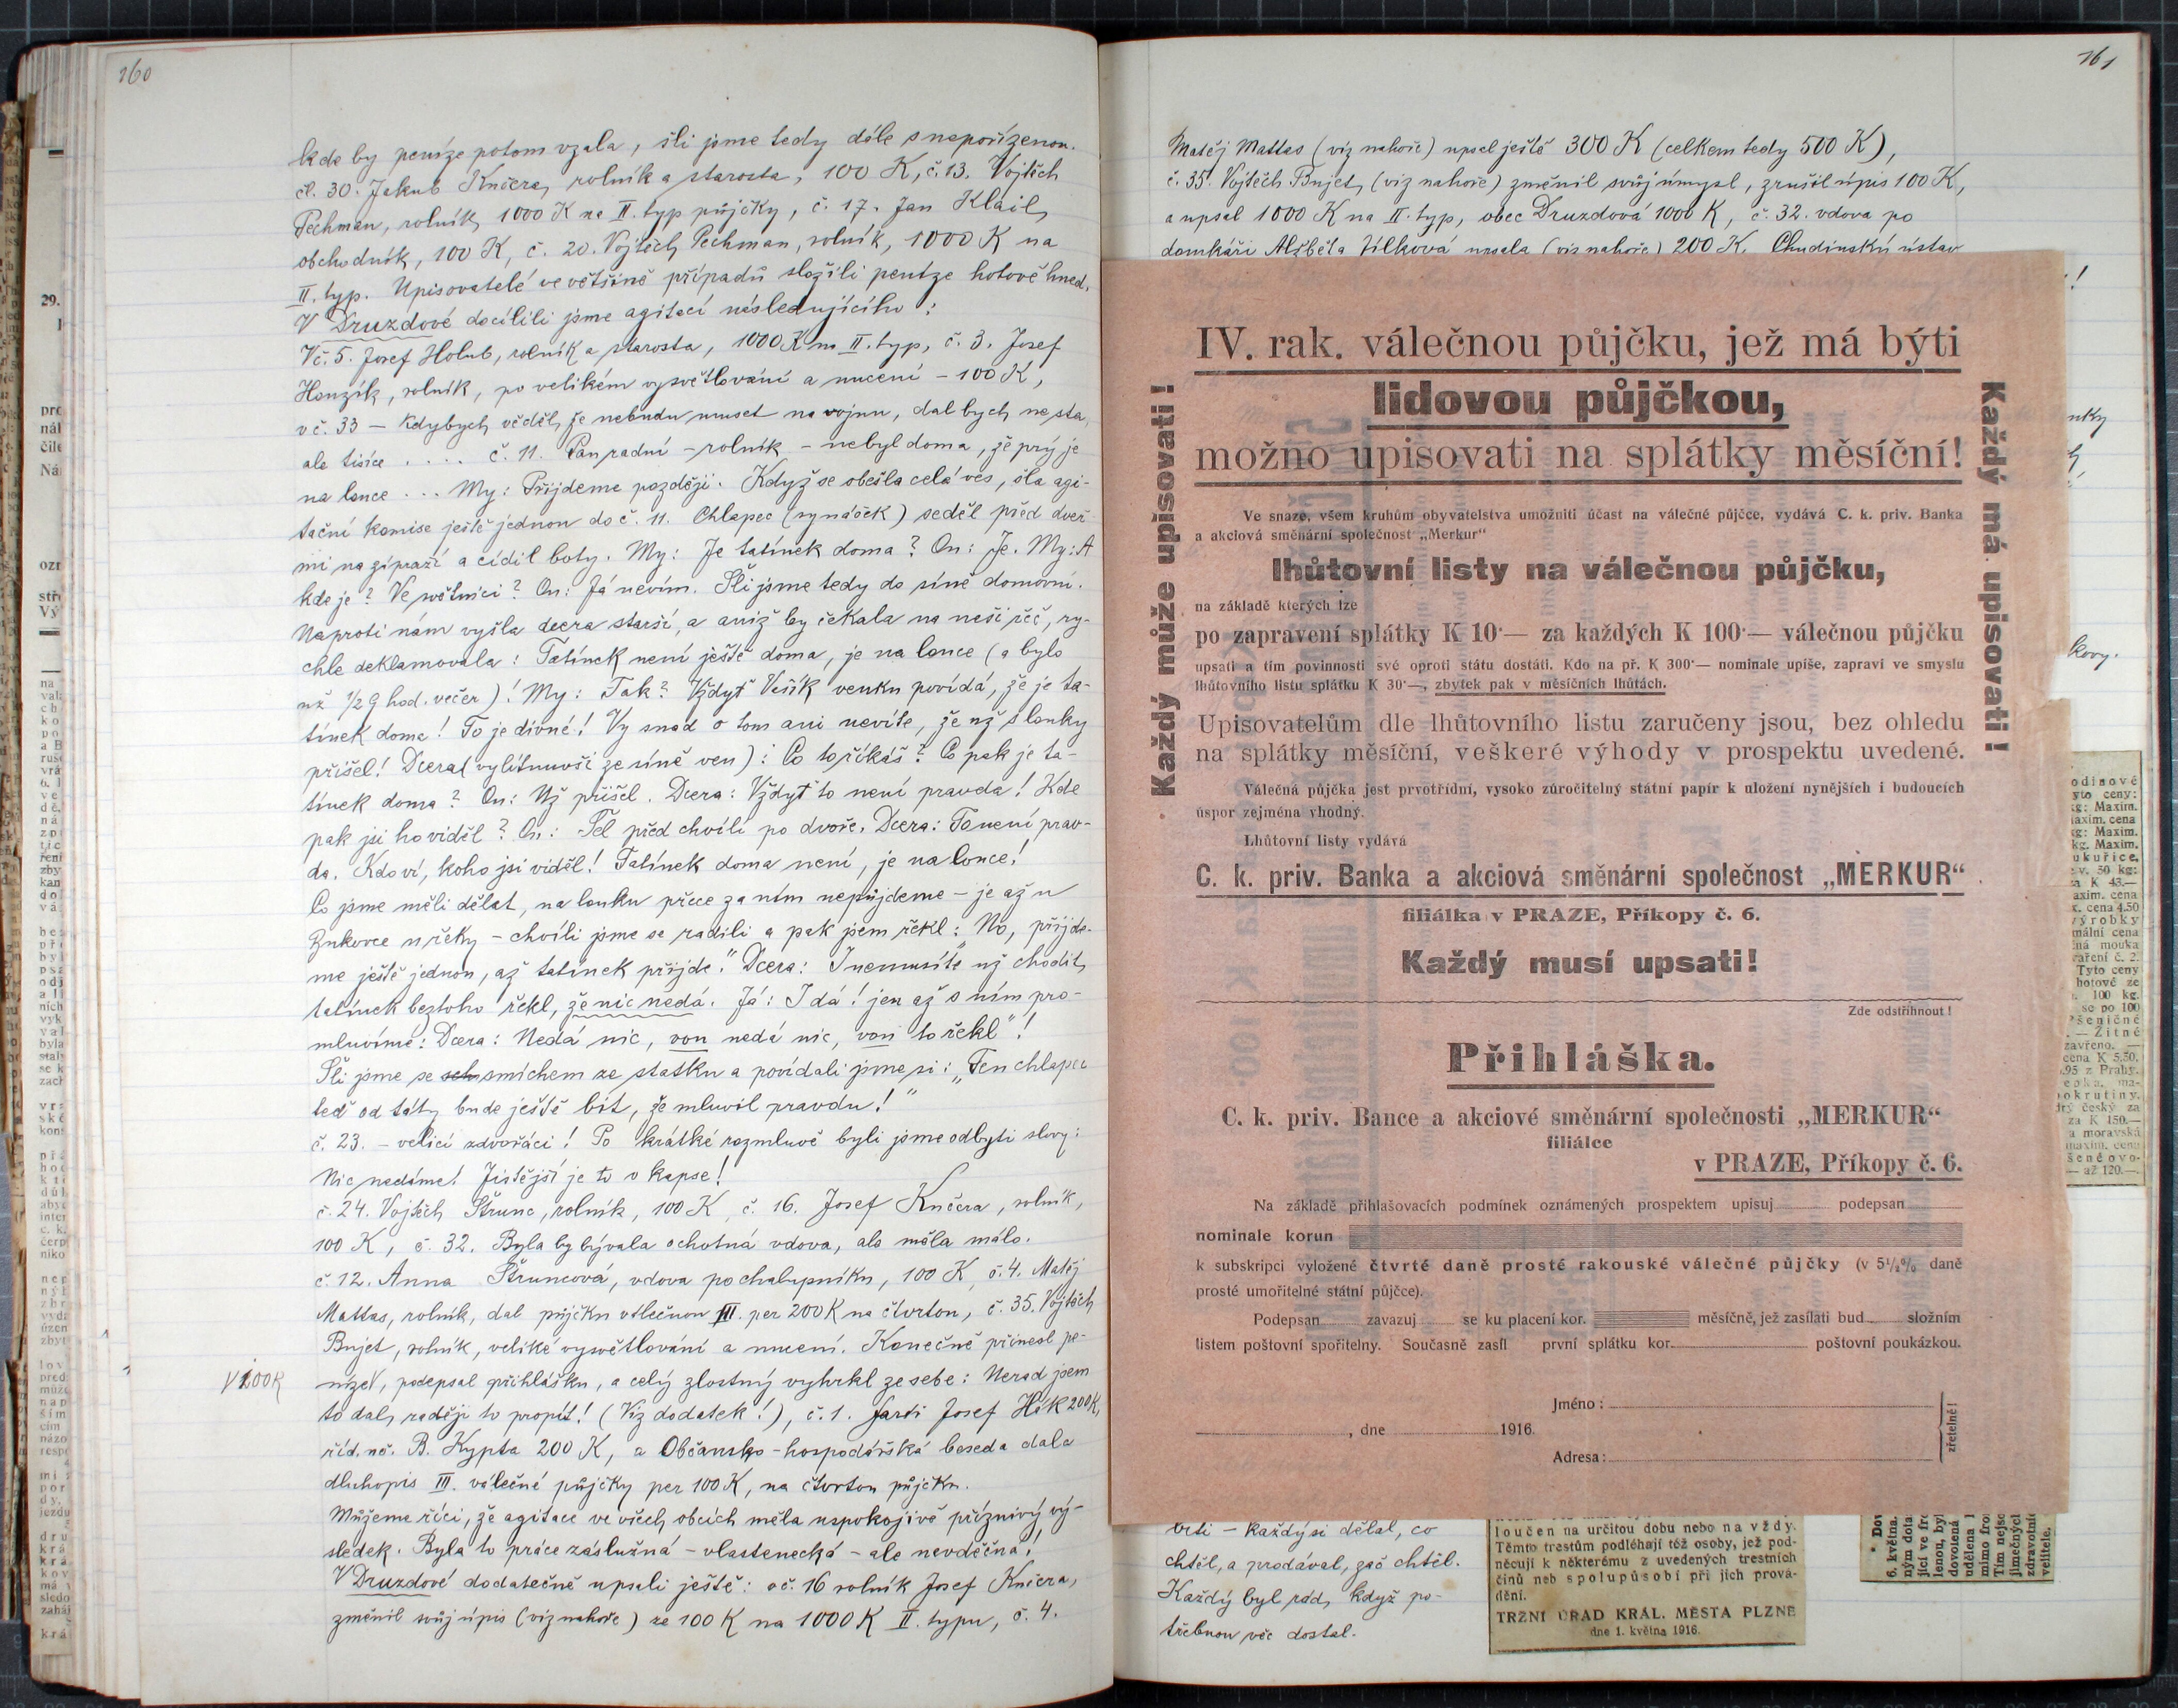 160
kde by peníze potom vzala, šli jsme tedy dále s nepořízenou.
čl. 30. Jakub Kučera, rolník a starosta, 100 K, č. 13. Vojtěch
Pechman, rolník, 1000 K na II. typ půjčky, č. 17. Jan Klail,
obchodník, 100 K, č. 20. Vojtěch Pechman, rolník, 1000 K na
II. typ. Upisovatelé ve většině případů složili peníze hotově hned.
V Druzdové docílili jsme agitací následujícího:
Vč. 5. Josef Holub, rolník a starosta, 1000 K na II. typ, č. 3. Josef
Honzík, rolník, po velikém vysvětlování a nucení – 100 K,
v č. 33 – Kdybych věděl, že nebudu muset na vojnu, dal bych ne sta,
ale tisíce . . . . č. 11. Pan radní – rolník – nebyl doma, že prý je
na louce . . . My: Přijdeme později. Když se obešla celá ves, šla agi-
tační komise ještě jednou do č. 11. Chlapec (synáček) seděl před dveř-
mi na zápraží a cídil boty. My: Je tatínek doma? On: Je. My: A
kde je? Ve světnici? On: Já nevím. Šli jsme tedy do síně domovní.
Naproti nám vyšla dcera starší, a aniž by čekala na naši řeč, ry-
chle deklamovala: Tatínek není ještě doma, je na louce (a bylo
už 1/2 9 hod. večer)! My: Tak? Vždyť Vešík venku povídá, že je ta-
tínek doma! To je divné! Vy snad o tom ani nevíte, že už s louky
přišel! Dcera (vylítnuvši ze síně ven): Co to říkáš? Co pak je ta-
tínek doma? On: Už přišel. Dcera: Vždyť to není pravda! Kde
pak jsi ho viděl? On: Šel před chvílí po dvoře. Dcera: To není prav-
da. Kdo ví, koho jsi viděl! Tatínek doma není, je na louce!
Co jsme měli dělat, na louku přece za ním nepůjdeme – je až u
Bukovce u řeky – chvíli jsme se radili a pak jsem řekl: No, přijde-
me ještě jednou, až tatínek přijde." Dcera: I nemusíte už chodit,
tatínek beztoho řekl, že nic nedá. Já: I dá! jen až s ním pro-
mluvíme! Dcera: Nedá nic, von nedá nic, von to řekl"!
Šli jsme se smíchem ze statku a povídali jsme si: „Ten chlapec
teď od táty bude ještě bit, že mluvil pravdu!"
č. 23. – velicí zdvořáci! Po krátké rozmluvě byli jsme odbyti slovy:
Nic nedáme! Jistější je to v kapse!
č. 24. Vojtěch Štrunc, rolník, 100 K, č. 16. Josef Kučera, rolník,
100 K, č. 32. Byla by bývala ochotná vdova, ale měla málo.
č. 12. Anna Štruncová, vdova po chalupníku, 100 K, č. 4. Matěj
Mattas, rolník, dal půjčku válečnou III. per 200 K na čtvrtou, č. 35. Vojtěch
Bujet, rolník, veliké vysvětlování a nucení. Konečně přinesl pe-
V 100 K
níze V, podepsal přihlášku, a celý zlostný vyhrkl ze sebe: Nerad jsem
to dal, raději to propít! (Viz dodatek!), č. 1. farář Josef Hák 200 K,
říd. uč. B. Kypta 200 K, a Občansko-hospodářská beseda dala
dluhopis III. válečné půjčky per 100 K, na čtvrtou půjčku.
Můžeme říci, že agitace ve všech obcích měla uspokojivě příznivý vý-
sledek. Byla to práce záslužná – vlastenecká – ale nevděčná!
V Druzdové dodatečně upsali ještě: v č. 16 rolník Josef Kučera,
změnil svůj úpis (viz nahoře) ze 100 K na 1000 K II. typu, č. 4.
161
Matěj Mattas (viz nahoře) upsal ještě 300 K (celkem tedy 500 K),
č. 35. Vojtěch Bujet, (viz nahoře) změnil svůj úmysl, zrušil úpis 100 K,
a upsal 1000 K na II. typ, obec Druzdová 1000 K, č. 32. vdova po
domkáři Alžběta Jílková upsala (viz nahoře) 200 K. Chudinský ústav
Každý může upisovati!
IV. rak. válečnou půjčku, jež má býti
lidovou půjčkou,
možno upisovati na splátky měsíční!
Každý má upisovati!
Ve snaze, všem kruhům obyvatelstva umožniti účast na válečné půjčce, vydává C. k. priv. Banka
a akciová směnární společnost „Merkur“
lhůtovní listy na válečnou půjčku,
na základě kterých lze
po zapravení splátky K 10·— za každých K 100·— válečnou půjčku
upsati a tím povinnosti své oproti státu dostáti. Kdo na př. K 300·— nominale upíše, zapraví ve smyslu
lhůtovního listu splátku K 30·—, zbytek pak v měsíčních lhůtách.
Upisovatelům dle lhůtovního listu zaručeny jsou, bez ohledu
na splátky měsíční, veškeré výhody v prospektu uvedené.
Válečná půjčka jest prvotřídní, vysoko zúročitelný státní papír k uložení nynějších i budoucích
úspor zejména vhodný.
Lhůtovní listy vydává
C. k. priv. Banka a akciová směnární společnost „MERKUR“
filiálka v PRAZE, Příkopy č. 6.
Každý musí upsati!
Zde odstřihnout!
Přihláška.
C. k. priv. Bance a akciové směnární společnosti „MERKUR“
filiálce
v PRAZE, Příkopy č. 6.
Na základě přihlašovacích podmínek oznámených prospektem upisuj podepsan
nominale korun
k subskripci vyložené čtvrté daně prosté rakouské válečné půjčky (v 5½% daně
prosté umořitelné státní půjčce).
Podepsan zavazuj se ku placení kor. měsíčně, jež zasílati bud složním
listem poštovní spořitelny. Současně zasíl první splátku kor. poštovní poukázkou.
Jméno:
, dne 1916.
Adresa:
zřetelně!
– každý si dělal, co
chtěl, a prodával, zač chtěl.
Každý byl rád, když po-
třebnou věc dostal.
loučen na určitou dobu nebo na vždy.
Těmto trestům podléhají též osoby, jež pod-
něcují k některému z uvedených trestních
činů neb spolupůsobí při jich prová-
dění.
TRŽNÍ ÚŘAD KRÁL. MĚSTA PLZNĚ
dne 1. května 1916.